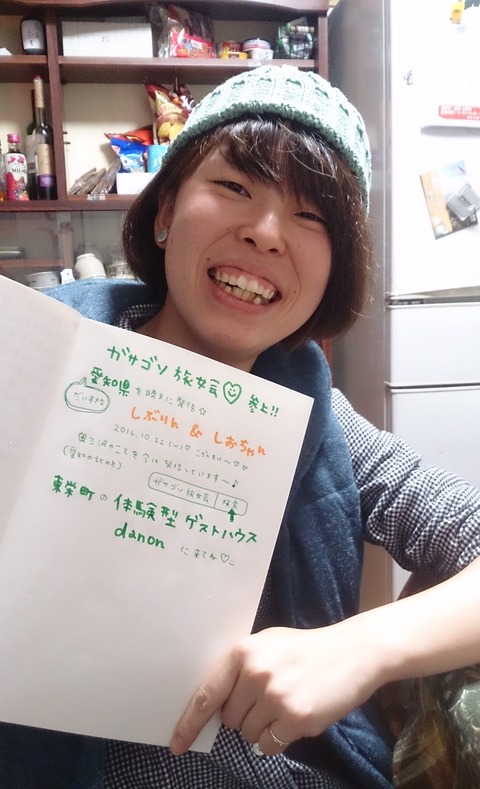 ガサゴソ旅女会 参上!!
愛知県を勝手に発信☆
だいすき
しぶりん & しおちゃん
2016.10.22
奥三河のことを今は発信しています〜♪
(愛知の北の方)
ガサゴソ旅女会 検索
東栄町の体験型ゲストハウス
danon に来てね♡